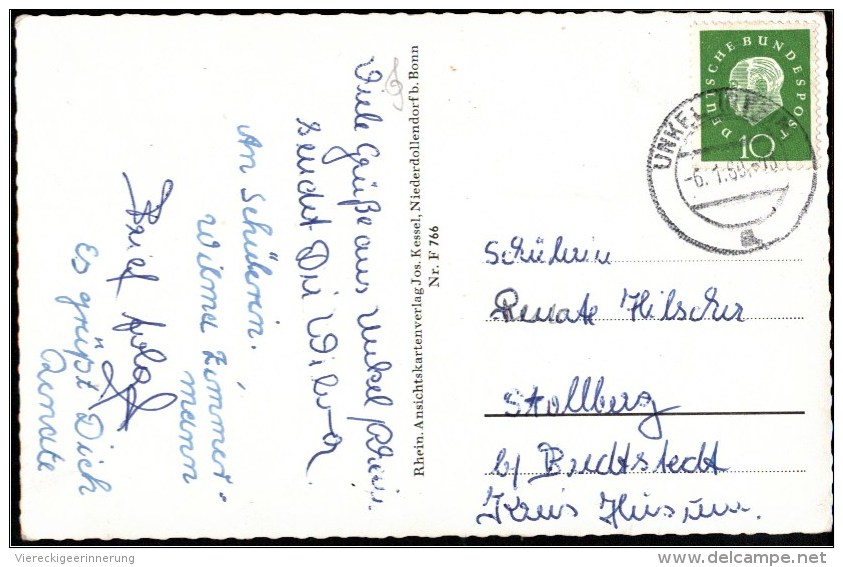 Viele Grüße aus Unkel Rhein.
sendet Dir Wilma
An Schülerin.
Wilma Zimmer-
mann
Brief folgt
Es grüßt Dich
Renate
Rhein. Ansichtskartenverlag Jos. Kessel, Niederdollendorf b. Bonn
Nr. F 766
DEUTSCHE BUNDESPOST
10
UNKEL
-6.1.60
a
Schülerin
Renate Hilscher
Stollberg
b/ Bredtstedt
Kreis Husum.
Viereckigeerinnerung
delcampe.net